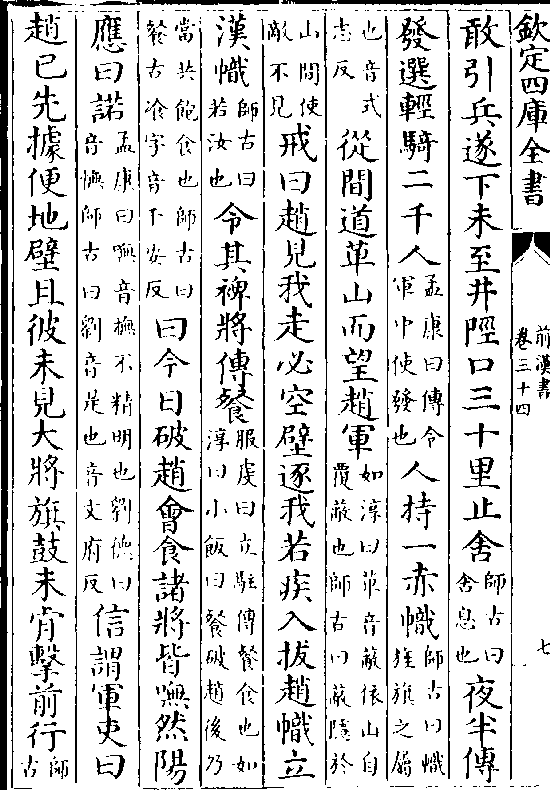 欽定四庫全書
前漢書
卷三十四
七
敢引兵遂下未至井陘口三十里止舍師古曰舍息也夜半傳
發選輕騎二千人孟康曰傳令軍中使發也人持一赤幟師古曰幟旌旗之屬
也音式志反從間道萆山而望趙軍如淳曰萆音蔽依山自覆蔽也師古曰蔽隱於
山間使敵不見戒曰趙見我走必空壁逐我若疾入拔趙幟立
漢幟師古曰若汝也令其裨將傳餐服虔曰立駐傳餐食也如淳曰小飯曰餐破趙後乃
當共飽食也師古曰餐古飡字音千安反曰今日破趙會食諸將皆嘸然陽
應曰諾孟康曰嘸音撫不精明也劉德曰音憮師古曰劉音是也音文府反信謂軍吏曰
趙已先據便地壁且彼未見大將旗鼓未肯擊前行師古